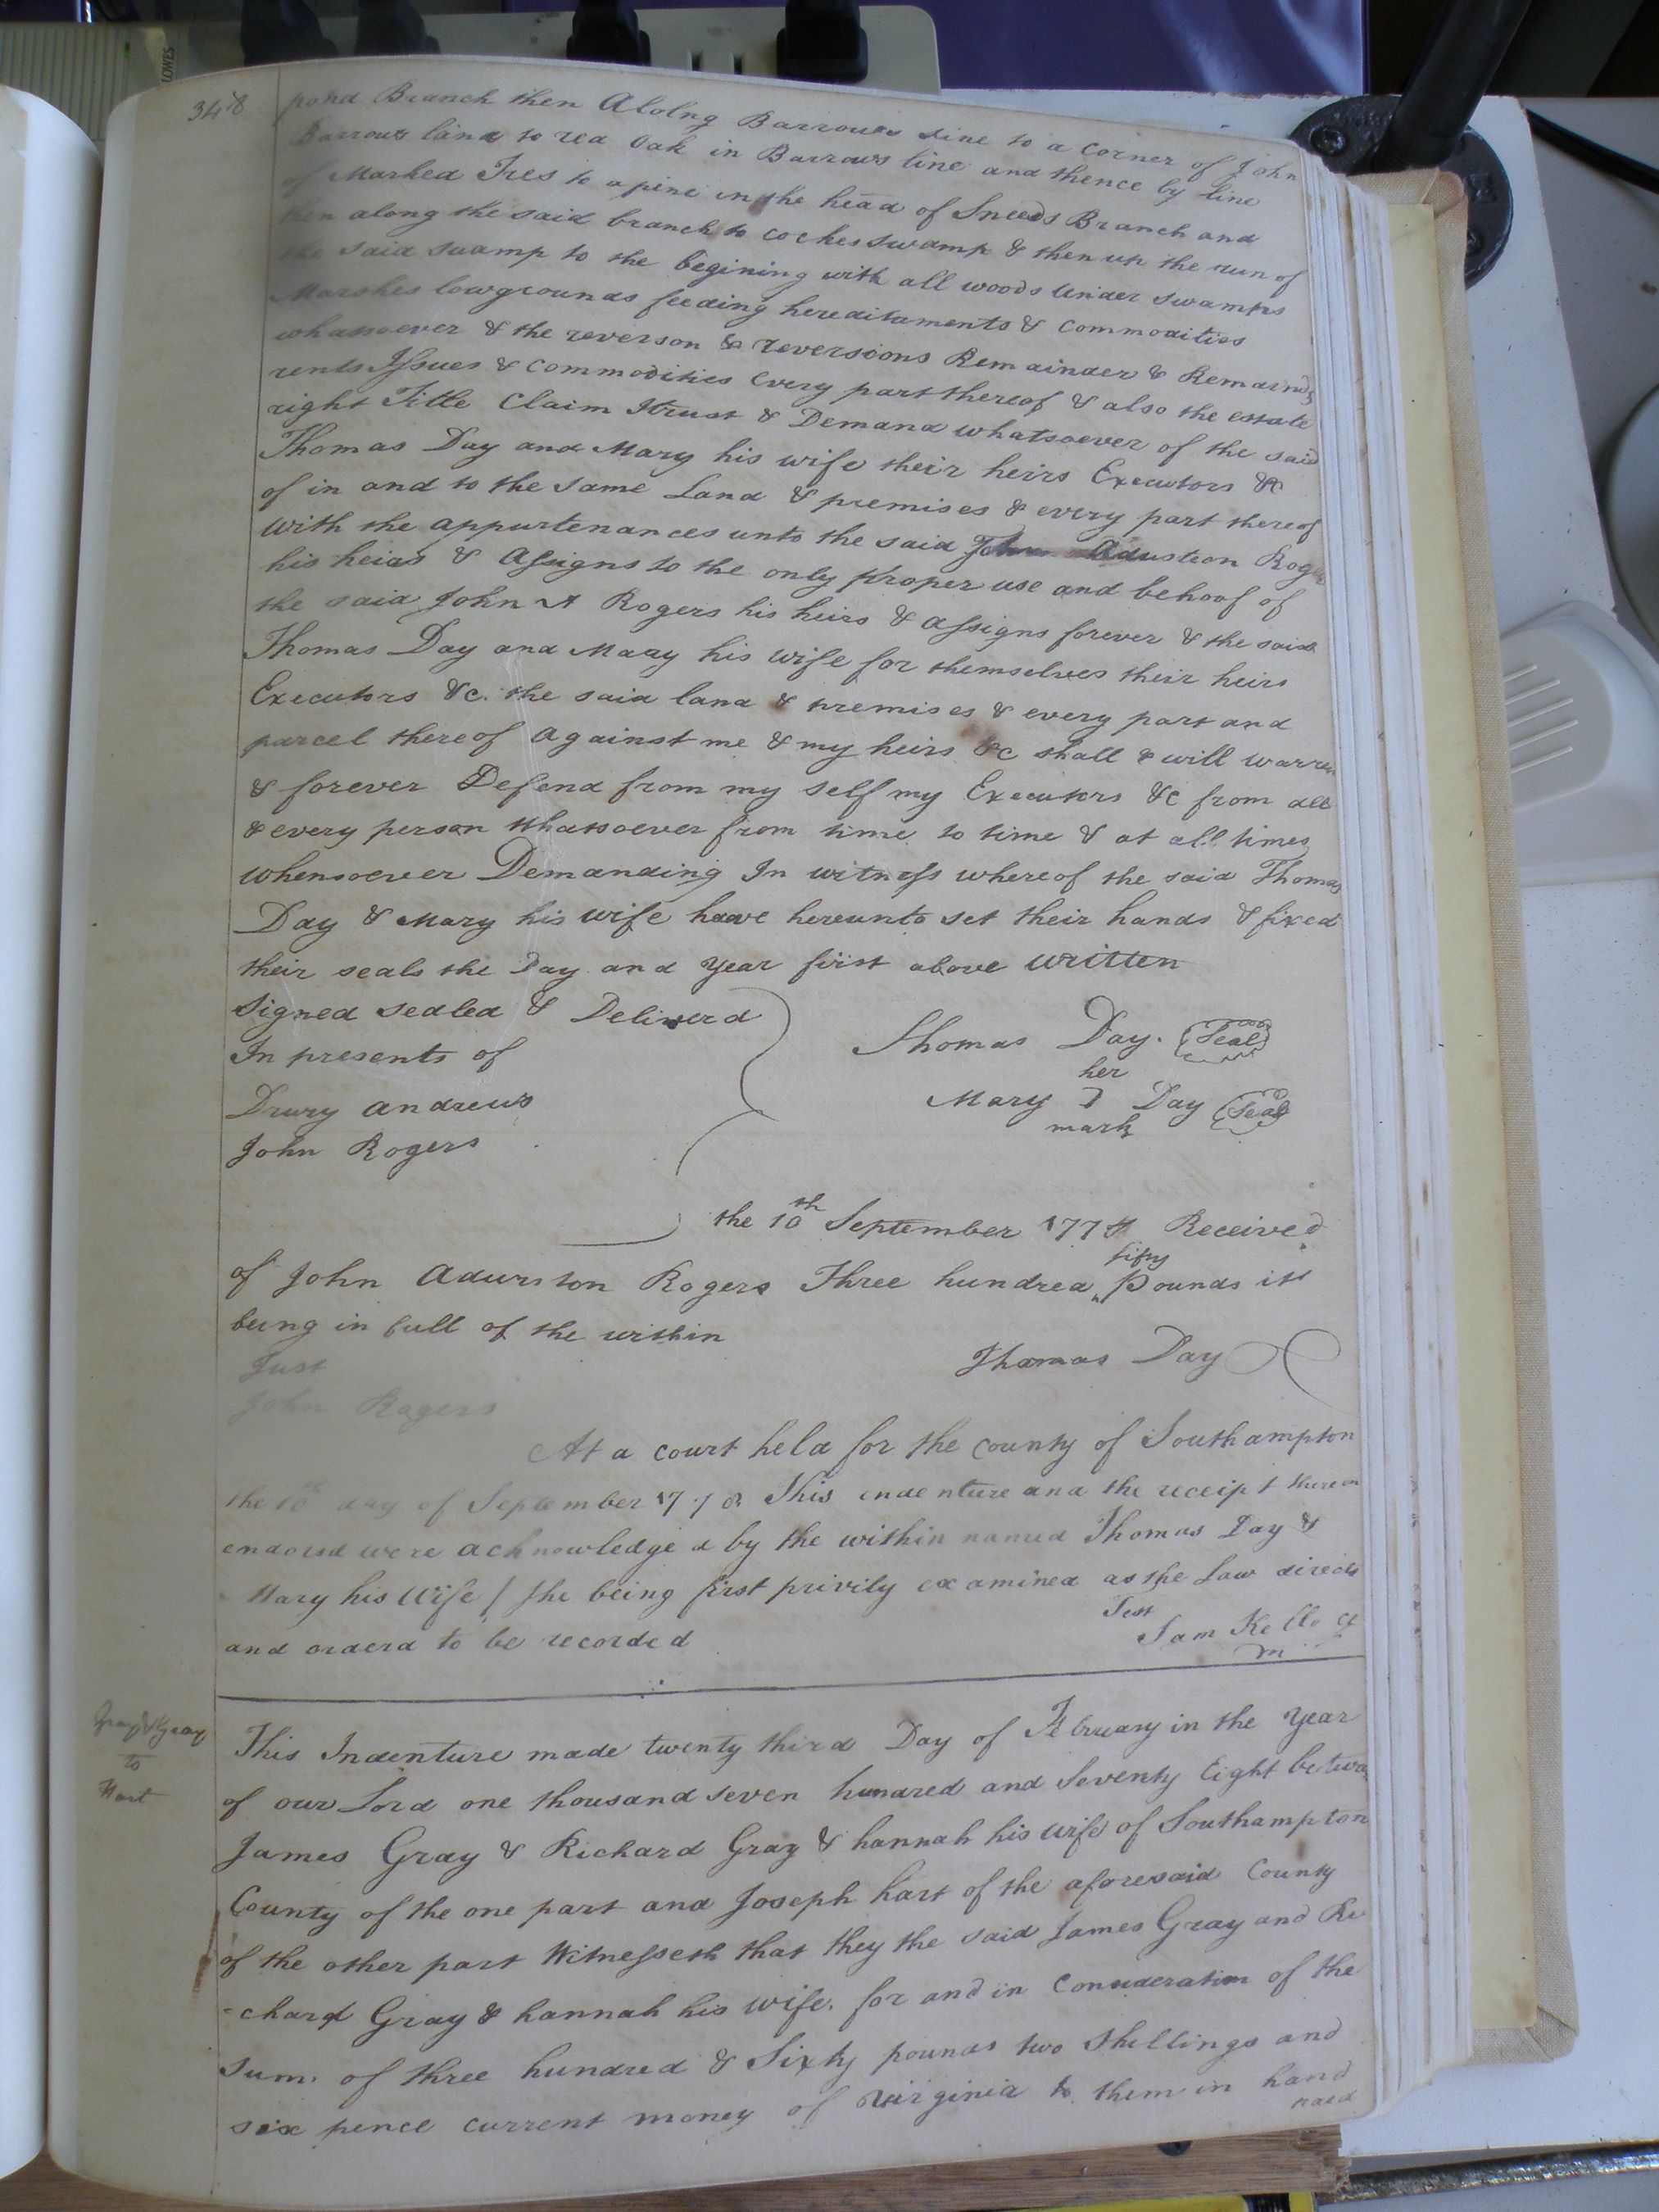 LOWES
348
pond Branch then Alolng Barrows line to a corner of John
Barrows land to red Oak in Barrows line and thence by line
of Marked Tres to a pine in the head of Sneeds Branch and
then along the said branch to coches swamp & then up the run of
the said swamp to the begining with all woods under swamps
Marshes lowgrounds feeding hereditaments & commodities
whatsoever & the reverson & reversions Remainder & Remainds
rents Issues & commodities every part thereof & also the estate
right Title Claim Itrust & Demand whatsoever of the said
Thomas Day and Mary his wife their heirs Executors &c
of in and to the same Land & premises & every part thereof
with the appurtenances unto the said Adusteon Roger
his heias & Assigns to the only proper use and behoof of
the said John A Rogers his heirs & assigns forever & the said
Thomas Day and Maay his wife for themselves their heirs
Executors &c. the said land & premises & every part and
parcel thereof against me & my heirs &c shall & will warren
& forever Defend from my self my Executors &c from all
& every person whatsoever from time to time & at all times
whensoever Demanding In witness whereof the said Thomas
Day & Mary his wife have hereunto set their hands & fixed
their seals the Day and Year first above written
Signed sealed & Deliverd
In presents of
Drury Andrews
John Rogers
Thomas Day. Seal
her
Mary Day Seal
mark
the 10th September 177 Received
fifty
of John Adurston Rogers Three hundred Pounds it
being in full of the within
Just
Thomas Day
John Rogers
At a court held for the county of Southampton
the 10th day of September 177 This indenture and the receipt thereon
endorsd were acknowledged by the within named Thomas Day &
Mary his Wife she being first privily examined as the Law directs
and orderd to be recorded
Test
Sam Kello Cl
Gray & Gray
to
Hart
This Indenture made twenty third Day of February in the Year
of our Lord one thousand seven hundred and Seventy Eight between
James Gray & Richard Gray & hannah his wife of Southampton
County of the one part and Joseph hart of the aforesaid County
of the other part Witnesseth that they the said James Gray and Ri
-chard Gray & hannah his wife. for and in Consideration of the
sum. of three hundred & Sixty pounds two Shillings and
six pence current money of virginia to them in hand
paid